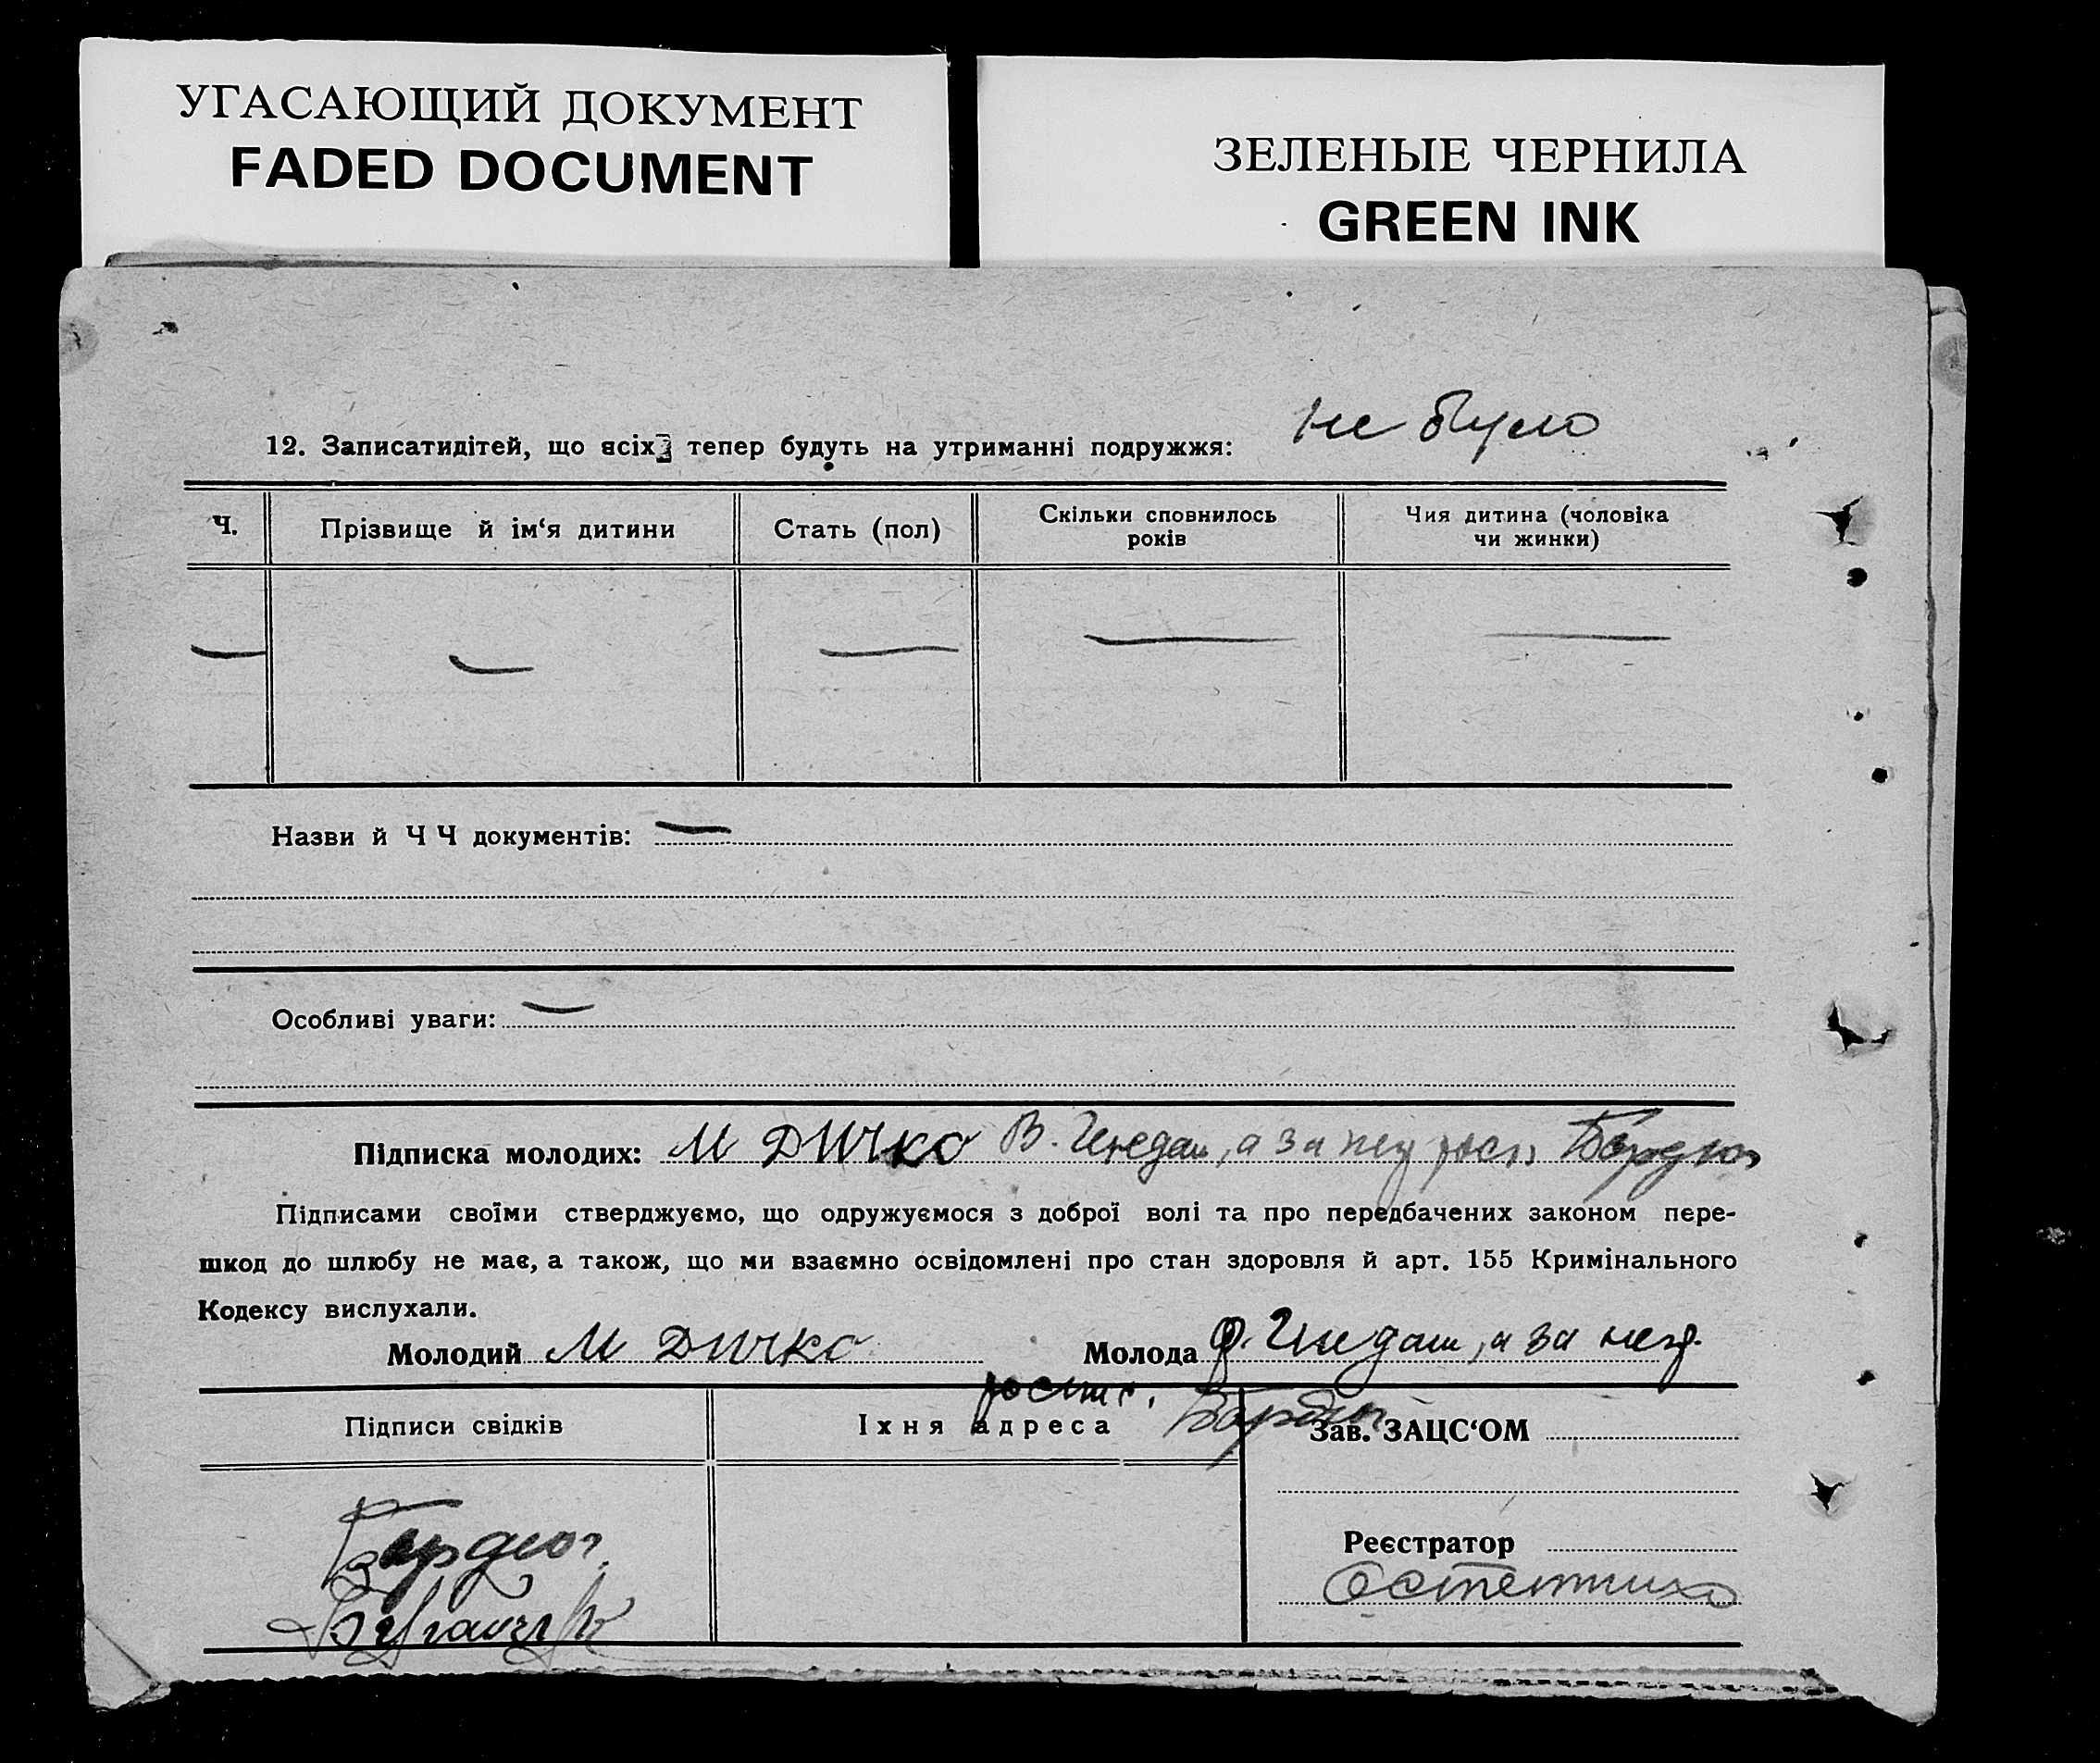 УГАСАЮЩИЙ ДОКУМЕНТ
FADED DOCUMENT
ЗЕЛЕНЫЕ ЧЕРНИЛА
GREEN INK
12. Записатидітей, що всіх тепер будуть на утриманні подружжя: не було
Ч. Прізвище й ім‘я дитини Стать (пол) Скільки сповнилось років Чия дитина (чоловіка чи жинки)
— — — — —
Назви й Ч Ч документів: —
Особливі уваги: —
Підписка молодих: М Дичко В. , а за
Підписами своїми стверджуємо, що одружуємося з доброї волі та про передбачених законом пере-
шкод до шлюбу не має, а також, що ми взаємно освідомлені про стан здоровля й арт. 155 Кримінального
Кодексу вислухали.
Молодий М Дичко Молода , а за
Підписи свідків Їхня адреса Зав. ЗАЦС‘ОМ
Реєстратор